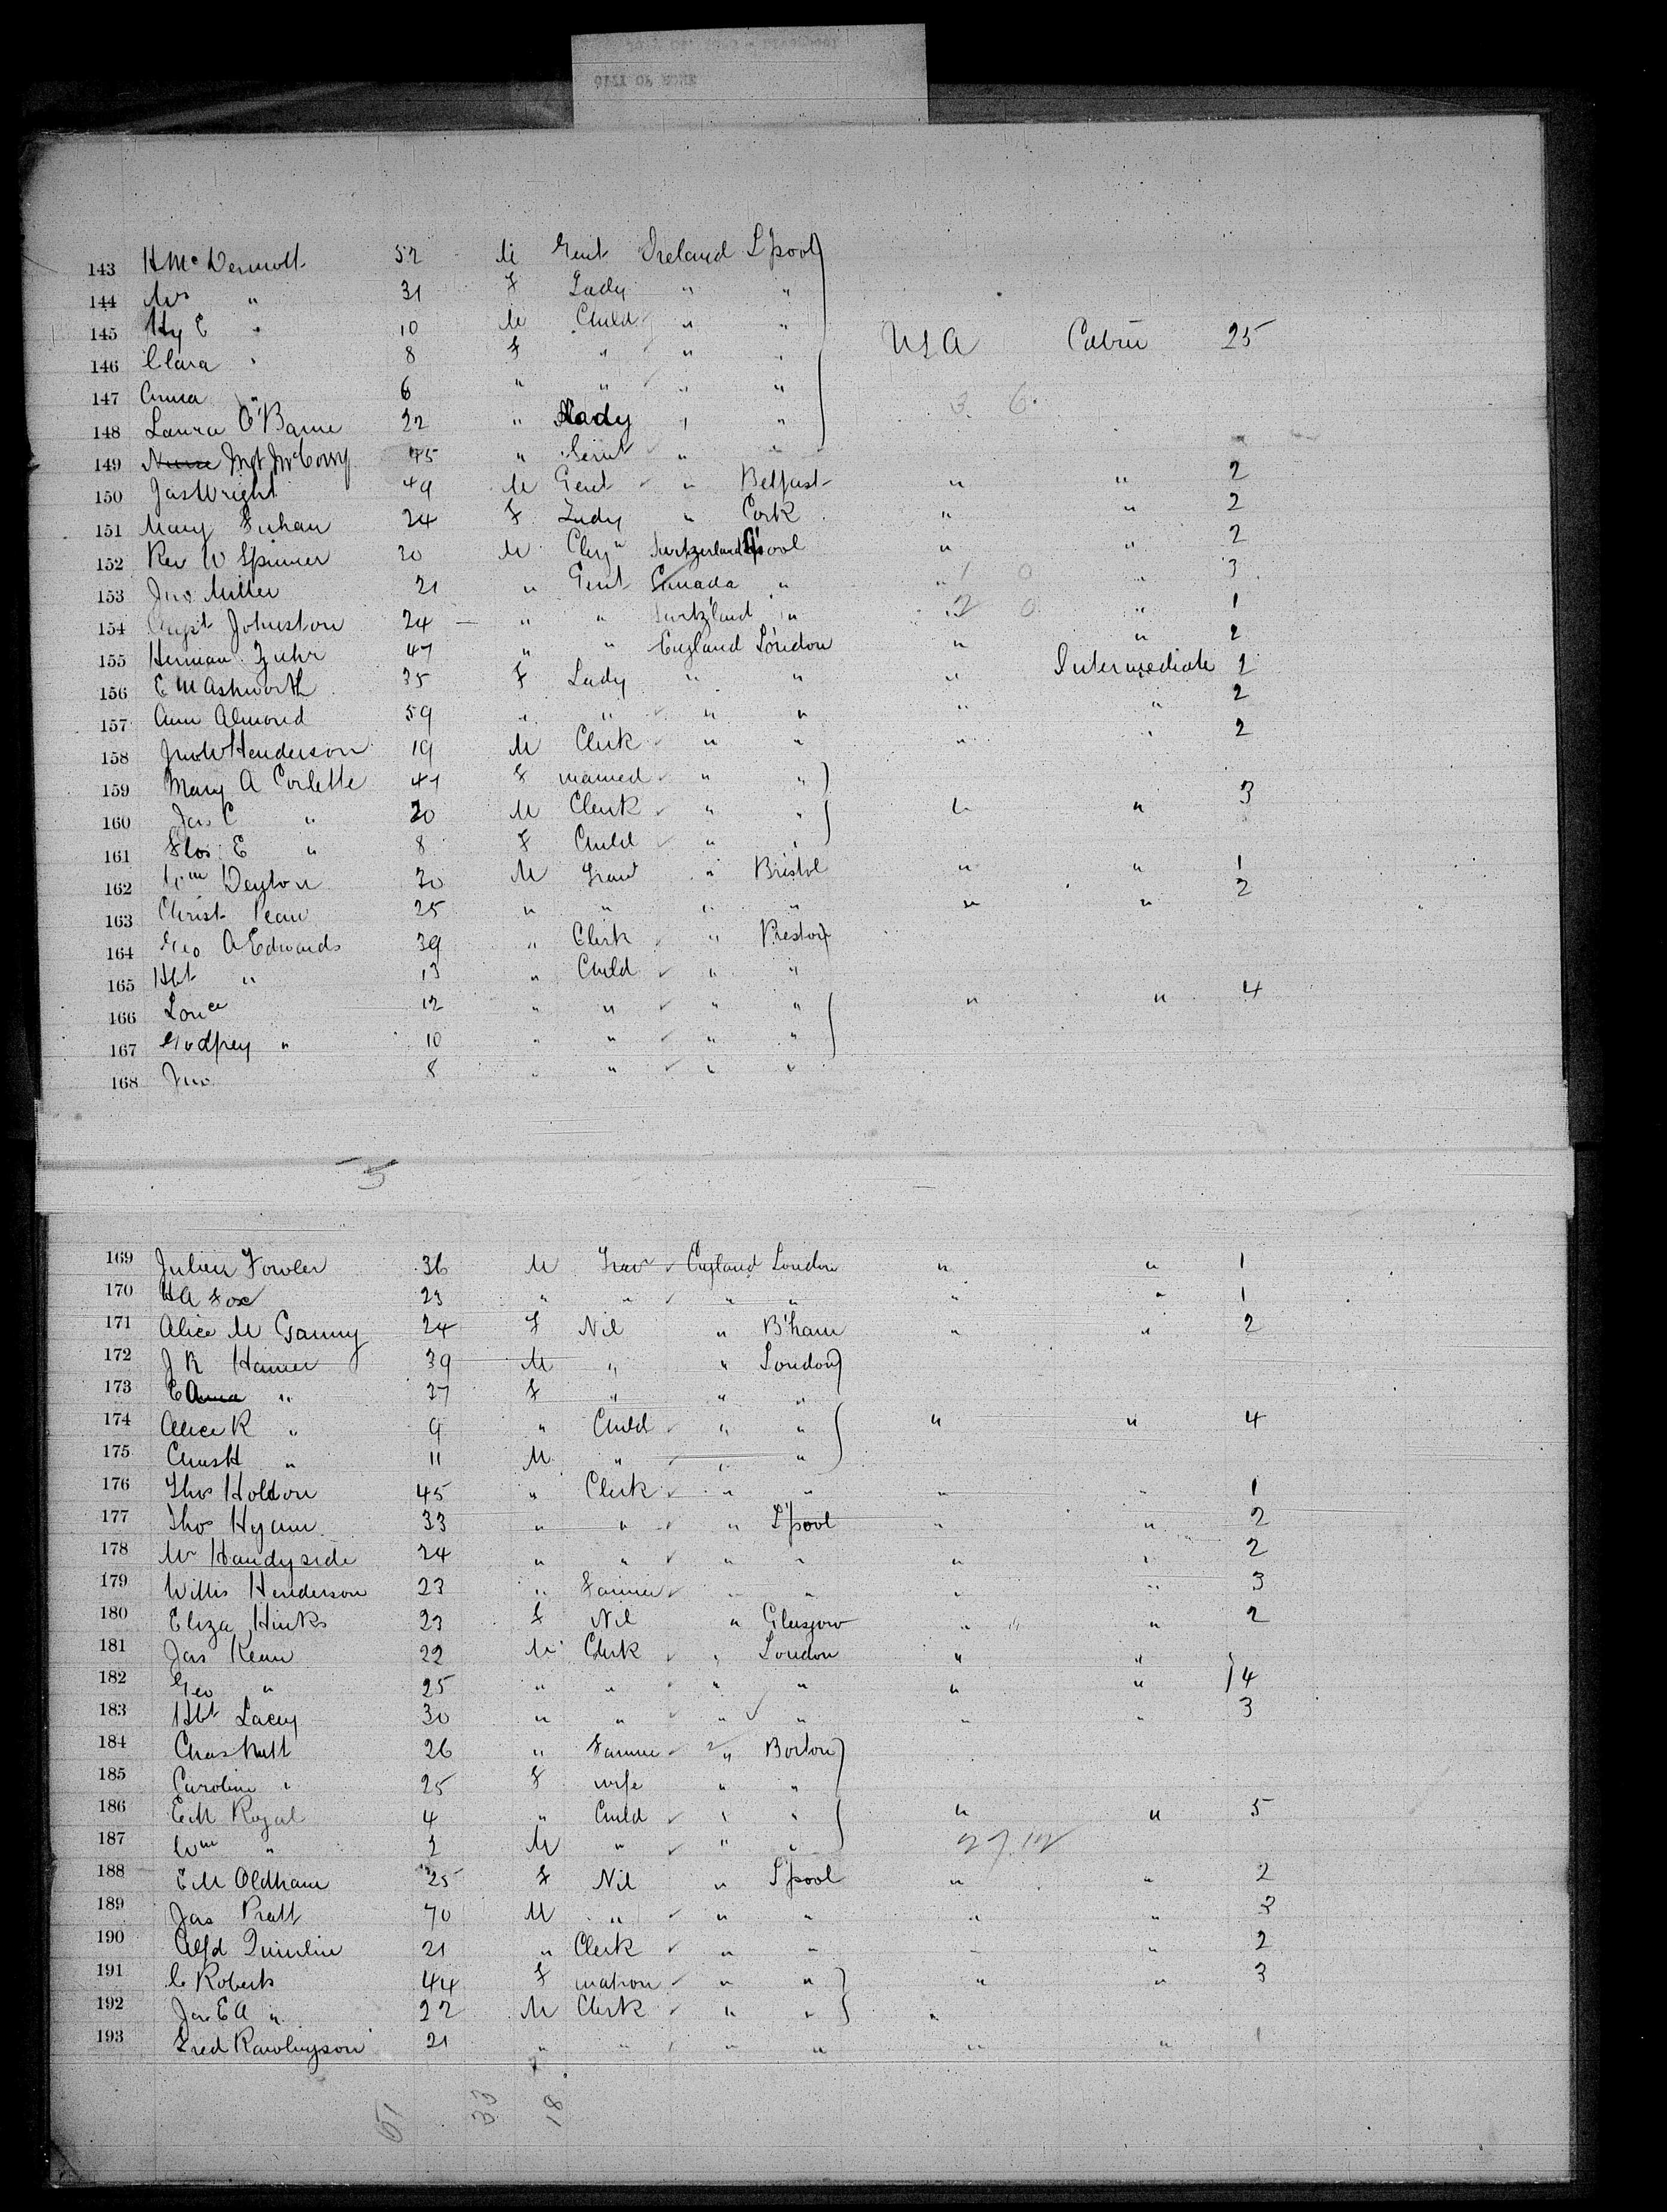 143 H McDermott 52 M Gent Ireland L'pool
144 Mrs " 31 F Lady " "
145 Hy E " 10 M Child " "
146 Clara " 8 F " " " USA Cabin 25
147 Anna " 6 " " " "
148 Laura O'Barne 22 " Lady " "
149 Nurse Mgt 45 " Servt " "
150 Jas Wright 49 M Gent " Belfast " " 2
151 Mary 24 F Lady " Cork " " 2
152 Rev W 30 M Clergn Switzerland L'pool " " 2
153 Jno Miller 21 " Gent Canada " " " 3
154 Capt Johnston 24 " " Switz'land " " " 1
155 Herman Zuhr 47 " " England London " " 2
156 E M Ashworth 35 F Lady " " " Intermediate 2
157 Ann Almond 59 " " " " " " 2
158 Jno W Henderson 19 M Clerk " " " " 2
159 Mary A Corlette 47 F married " "
160 Jas C " 20 M Clerk " " " " 3
161 Flos E " 8 F Child " "
162 Wm Deyton 30 M " Bristol " " 1
163 Christ 25 " " " " " " 2
164 Geo A Edwards 39 " Clerk " Preston
165 Hbt " 13 " Child " "
166 12 " " " " " " 4
167 Godfrey " 10 " " " "
168 Jno 8 " " " "
169 Julien Fowler 36 M England London " " 1
170 H A Fox 23 " " " " " " 1
171 Alice M 24 F Nil " B'ham " " 2
172 J R Hamer 39 M " " London
173 E Anna " 37 F " " "
174 Alice K " 9 " Child " " " " 4
175 Chas H " 11 M " " "
176 Thos Holdon 45 " Clerk " " " " 1
177 Thos Hyam 33 " " " L'pool " " 2
178 Mr Handyside 24 " " " " " " 2
179 Willis Henderson 23 " Farmer " " " " 3
180 Eliza Hinks 23 F Nil " Glasgow " " 2
181 Jas Kean 22 M Clerk " London " "
182 Geo " 25 " " " " " " 4
183 Hbt Lacey 30 " " " " " " 3
184 Chas 26 " Farmer " Boston
185 Caroline " 25 F wife " "
186 E M Royal 4 " Child " " " " 5
187 Wm " 2 M " " "
188 E M Oldham 25 F Nil " L'pool " " 2
189 Jas Pratt 70 M " " " " " 3
190 Alfd Quinlin 21 " Clerk " " " " 2
191 C Roberts 44 F matron " " " " 3
192 Jas E A " 22 M Clerk " " "
193 Fred Rawlingson 21 " " " " " " 1
51 33 18